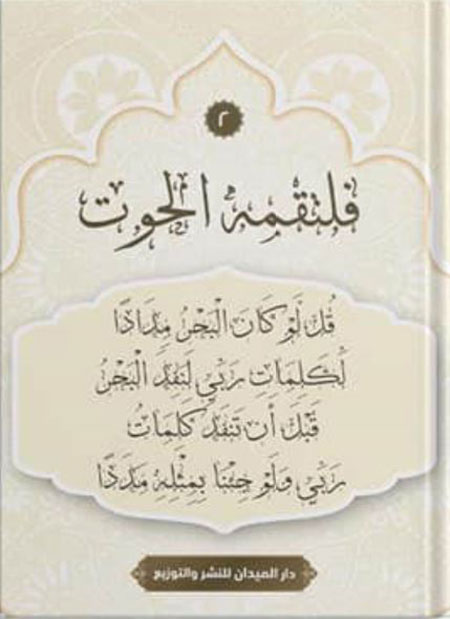 ٢
فلتقمه الحوت
قُل لَّوْ كَانَ الْبَحْرُ مِدَادًا
لِّكَلِمَاتِ رَبِّي لَنَفِدَ الْبَحْرُ
قَبْلَ أَن تَنفَدَ كَلِمَاتُ
رَبِّي وَلَوْ جِئْنَا بِمِثْلِهِ مَدَدًا
دار الميدان للنشر والتوزيع